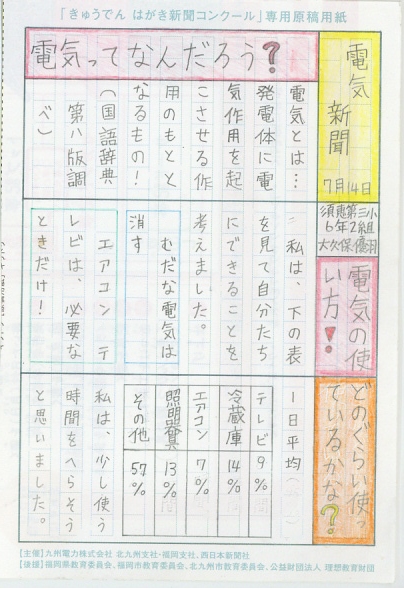 「きゅうでん はがき新聞コンクール」専用原稿用紙
電気新聞
7月14日
須恵第三小
6年2組
大久保優羽
電気ってなんだろう?
電気とは…
発電体に電
気作用を起
こさせる作
用のもとと
なるもの!
(国語辞典
第八版調
べ)
電気の使
い方!
私は、下の表
を見て自分たち
にできることを
考えました。
むだな電気は
消す
エアコン テ
レビは、必要な
ときだけ!
どのぐらい使っ
ているかな?
1日平均
テレビ 9%
冷蔵庫 14%
エアコン 7%
照明器具 13%
その他 57%
私は、少し使う
時間をへらそう
と思いました。
【主催】九州電力株式会社 北九州支社・福岡支社、西日本新聞社
【後援】福岡県教育委員会、福岡市教育委員会、北九州市教育委員会、公益財団法人 理想教育財団